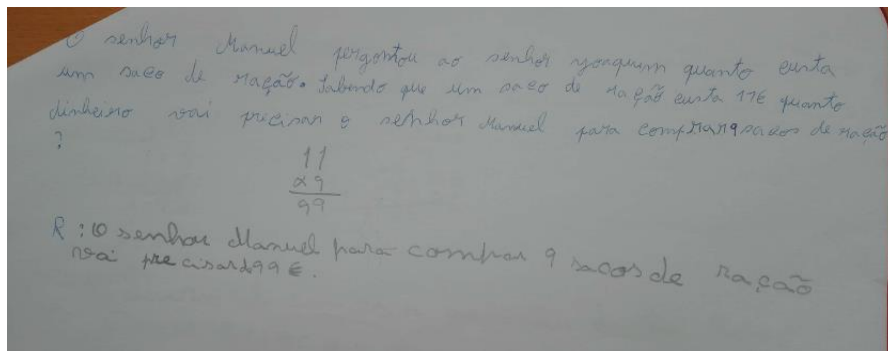 O senhor Manuel pergontou ao senhor yoaquim quanto custa
um saco de ração. Sabendo que um saco de ração custa 11€ quanto
dinheiro vai precisar o senhor Manuel para comprar 9 sacos de ração
?
11
x9
99
R: O senhor Manuel para comprar 9 sacos de ração
vai precisar d 99 €.